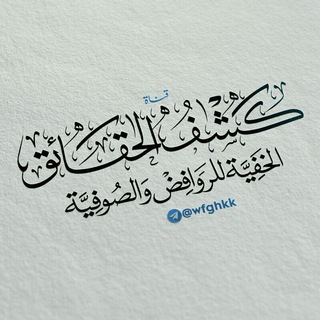 قناة
كَشْفُ الحقائق
الخَفِيَّة للرَوافِضْ وَالصُوفِيَّة
@wfghkk